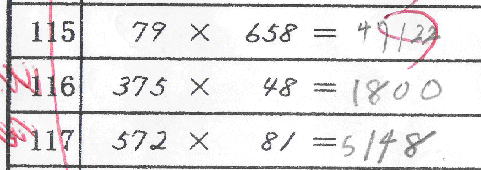 115 79 × 658 = 49122
116 375 × 48 = 1800
117 572 × 81 = 5148